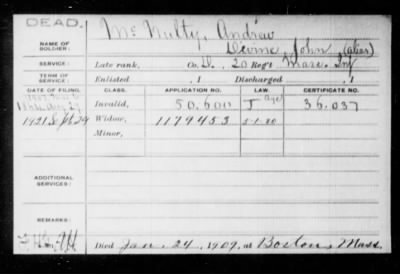 DEAD.
Mc Nulty, Andrew
NAME OF SOLDIER: Devine, John (alias)
SERVICE: Late rank, Co. D, 20 Reg't Mass. Inf
TERM OF SERVICE: Enlisted , 1 Discharged , 1
DATE OF FILING. CLASS. APPLICATION NO. LAW. CERTIFICATE NO.
Invalid, 50.600 36.037
1921 Widow, 1179453 5-1-20
Minor,
ADDITIONAL SERVICES:
REMARKS:
Died Jan. 24, 1909, at Boston, Mass.